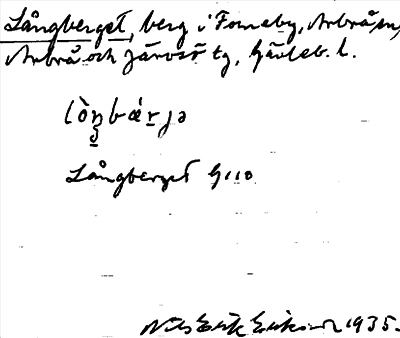 Långberget, berg i Forneby, Arbrå sn,
Arbrå och Järvsö tg, Gävleb. l.
Långberget G 110
Nils Erik Eriksson 1935.